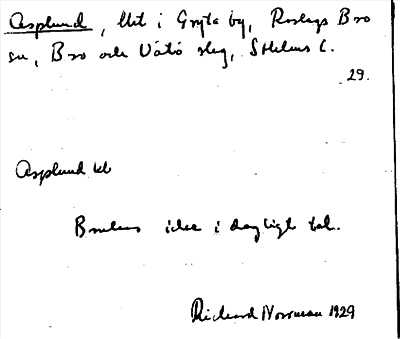 Asplund, lht i Gryta by, Roslags Bro
sn, Bro och Vätö slg, Sthlms l.
29.
Asplund lht
Brukas icke i dagligt tal.
Richard Norrman 1929